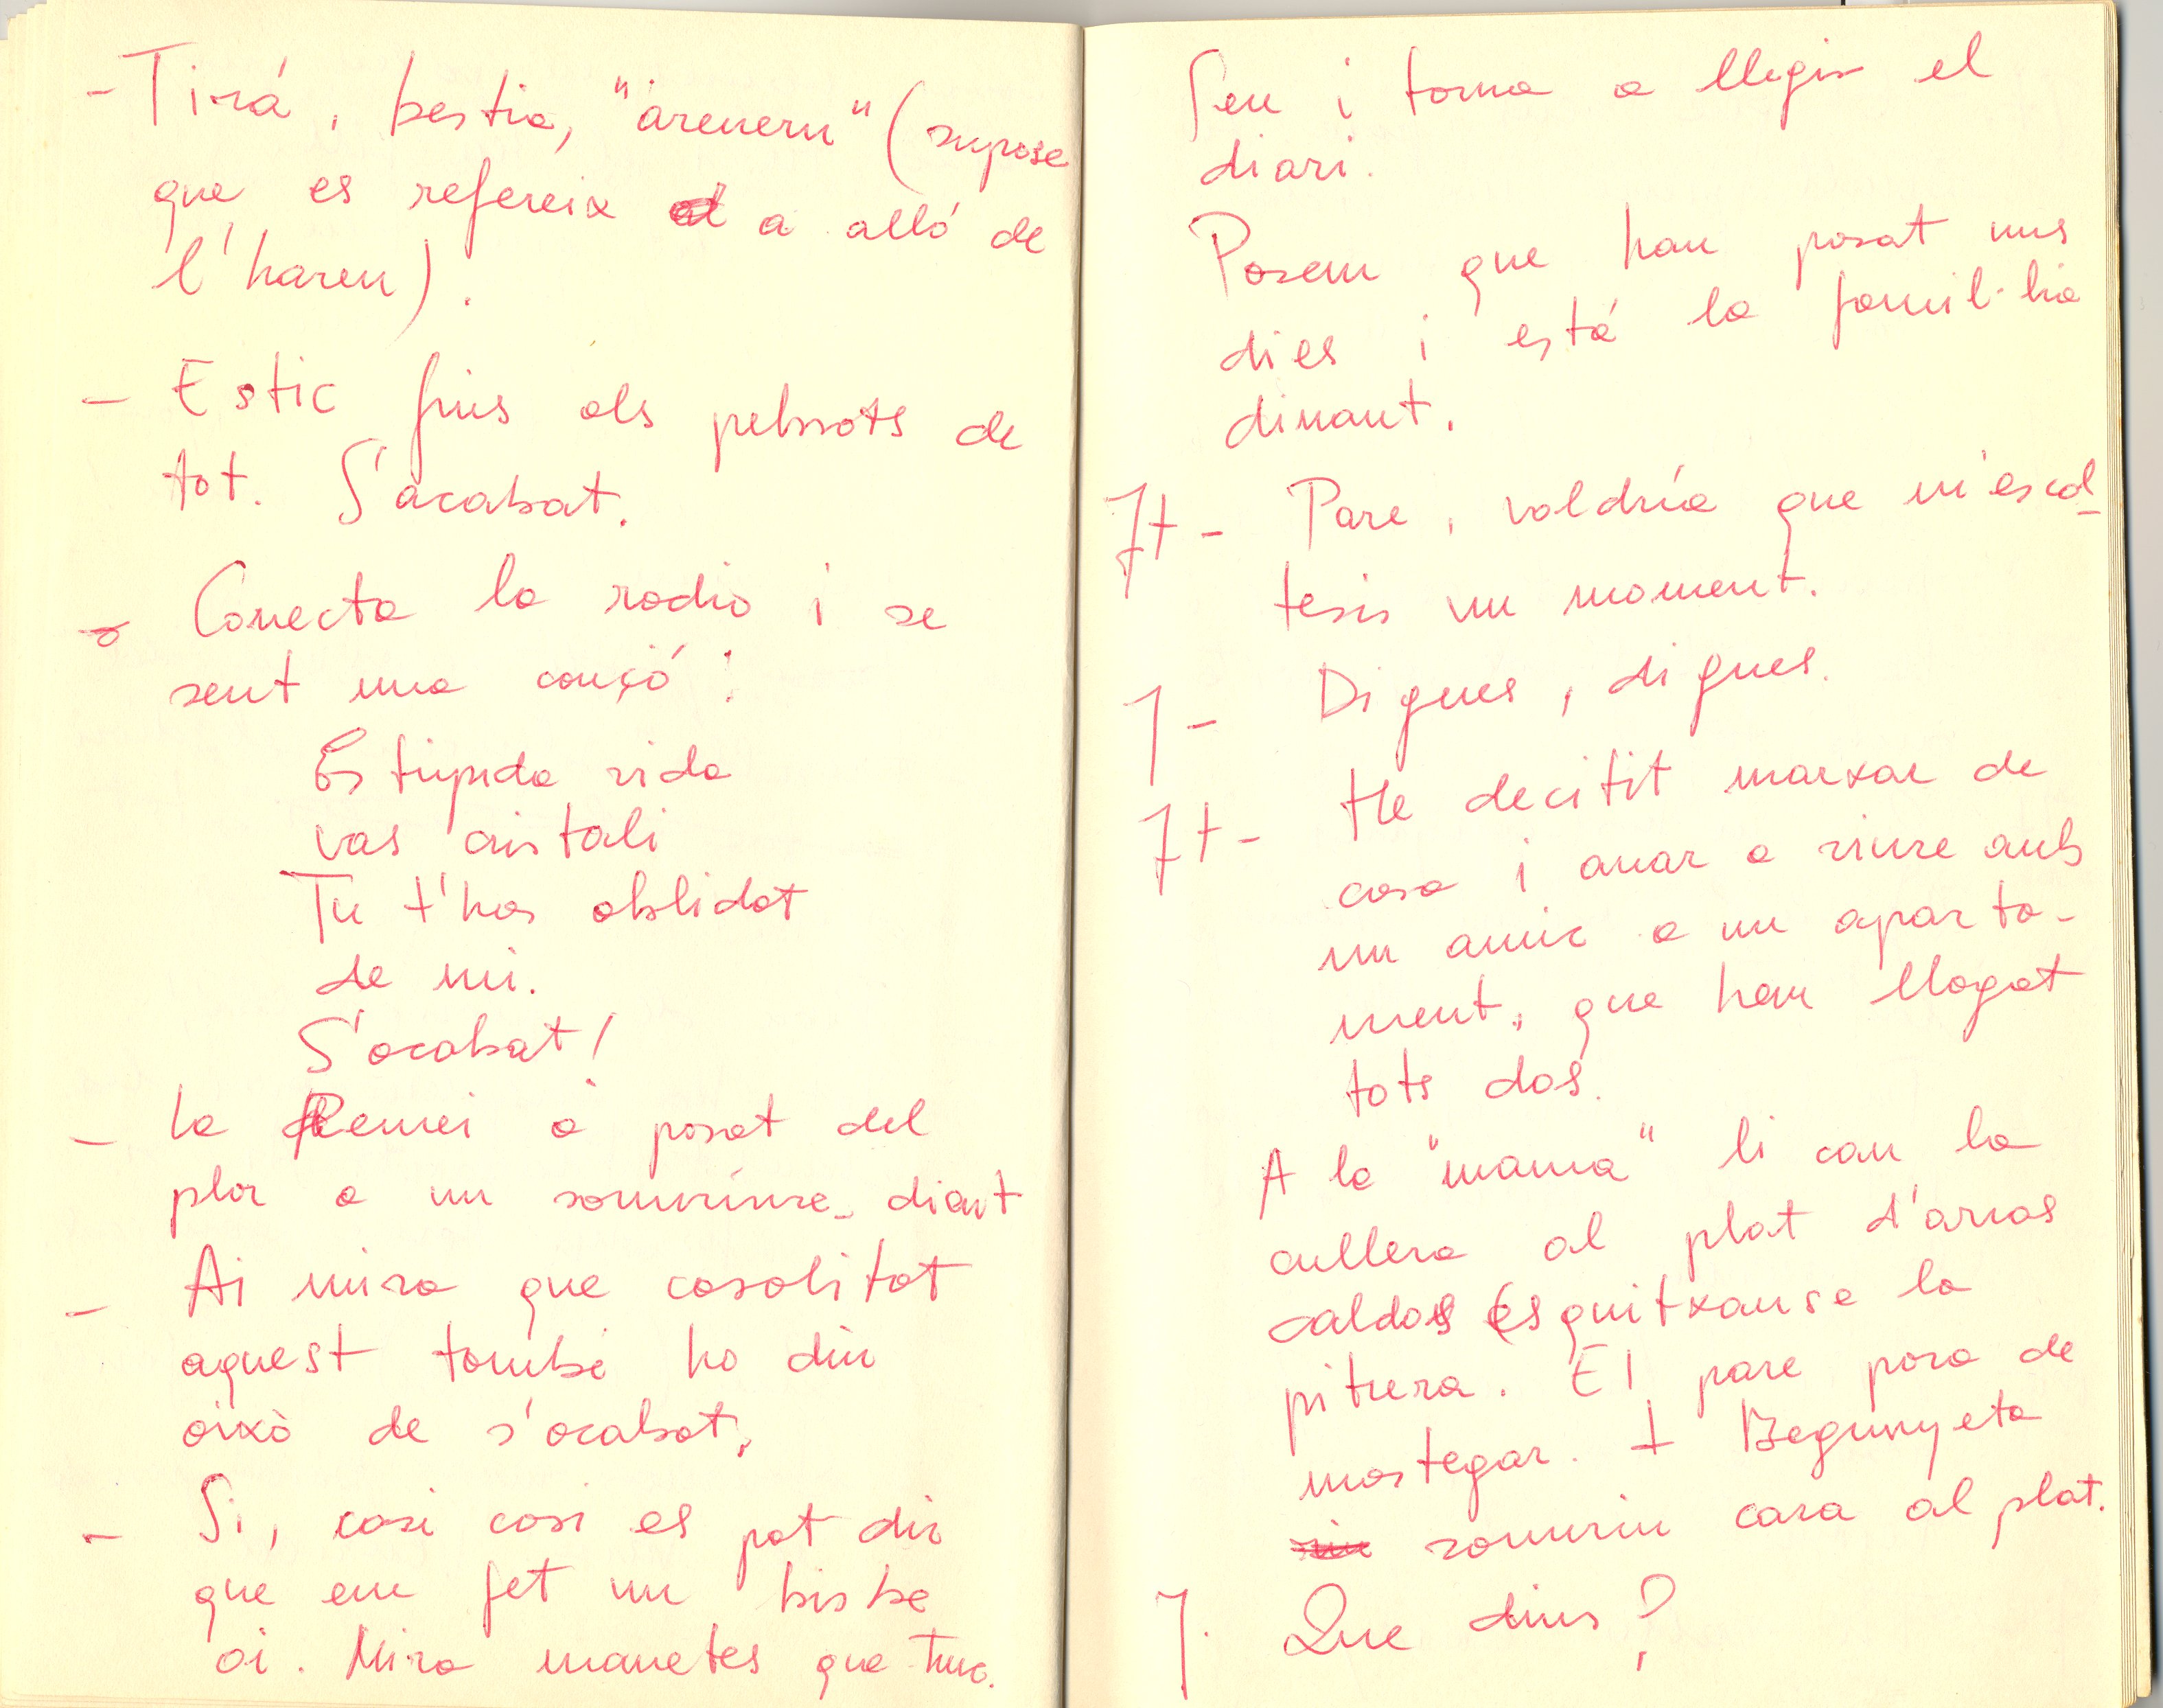 - Tirá, bestia, "àrenem" (supose
que es refereix a alló de
l'harem).
- Estic fins als pebrots de
tot. S'acabat.
Conecta la radio i se
sent una cançó:
Estupida vida
vas cristali
Tu t'has oblidat
de mi.
S'acabat!
- La Remei a posat del
plor a un somriure, diant
- Ai mira que casolitat
aquest també ho diu
això de s'acabat.
- Si, casi casi es pot dir
que em fet un bisbe
oi. Mira manetes que tinc.
Seu i torna a llegir el
diari.
Posem que han posat uns
dies i está la famil·lia
dinant.
J+ - Pare, voldría que m'escol-
tesis un moment.
J - Digues, digues.
J+ - He decitit marxar de
casa i anar a viure amb
un amic a un aparta-
ment, que hem llogat
tots dos.
A la "mama" li cau la
cullera al plat d'arros
caldos esquitxanse la
pitrera. El pare para de
mastegar. I Begunyeta
somriu cara al plat.
J. Que dius?